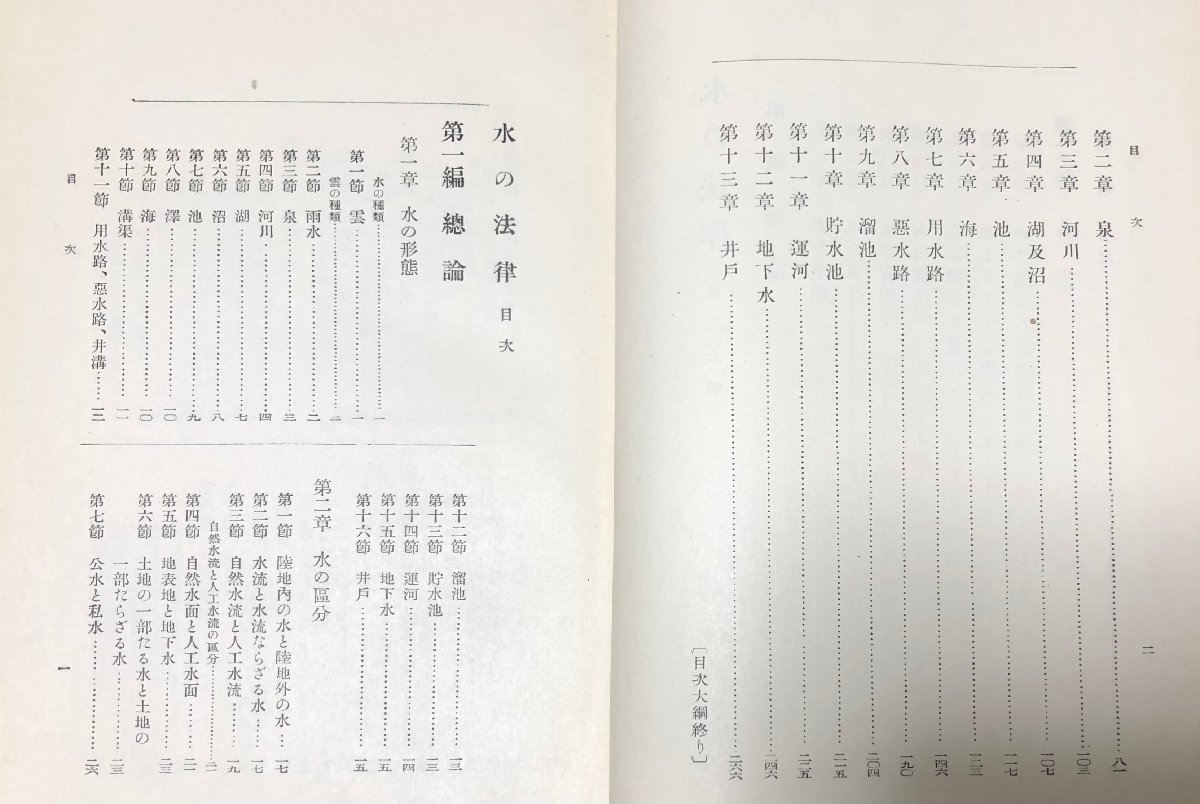 目次
第二章 泉……八一
第三章 河川……一〇三
第四章 湖及沼……一〇七
第五章 池……一一七
第六章 海……
第七章 用水路……一四六
第八章 惡水路……一九〇
第九章 溜池……二〇四
第十章 貯水池……二一五
第十一章 運河……二二五
第十二章 地下水……二四六
第十三章 井戶……二六六
〔目次大綱終り〕
二
水の法律 目次
第一編 總論
第一章 水の形態
水の種類……一
第一節 雲……一
雲の種類……二
第二節 雨水……二
第三節 泉……三
第四節 河川……四
第五節 湖……七
第六節 沼……八
第七節 池……九
第八節 澤……一〇
第九節 海……一〇
第十節 溝渠……一一
第十一節 用水路、惡水路、井溝……一二
第十二節 溜池……一三
第十三節 貯水池……一三
第十四節 運河……一四
第十五節 地下水……一五
第十六節 井戶……一五
第二章 水の區分
第一節 陸地內の水と陸地外の水…一七
第二節 水流と水流ならざる水……一七
第三節 自然水流と人工水流……一九
自然水流と人工水流の區分……二一
第四節 自然水面と人工水面……二一
第五節 地表地と地下水……二三
第六節 土地の一部たる水と土地の
一部たらざる水……二三
第七節 公水と私水……二六
目次
一